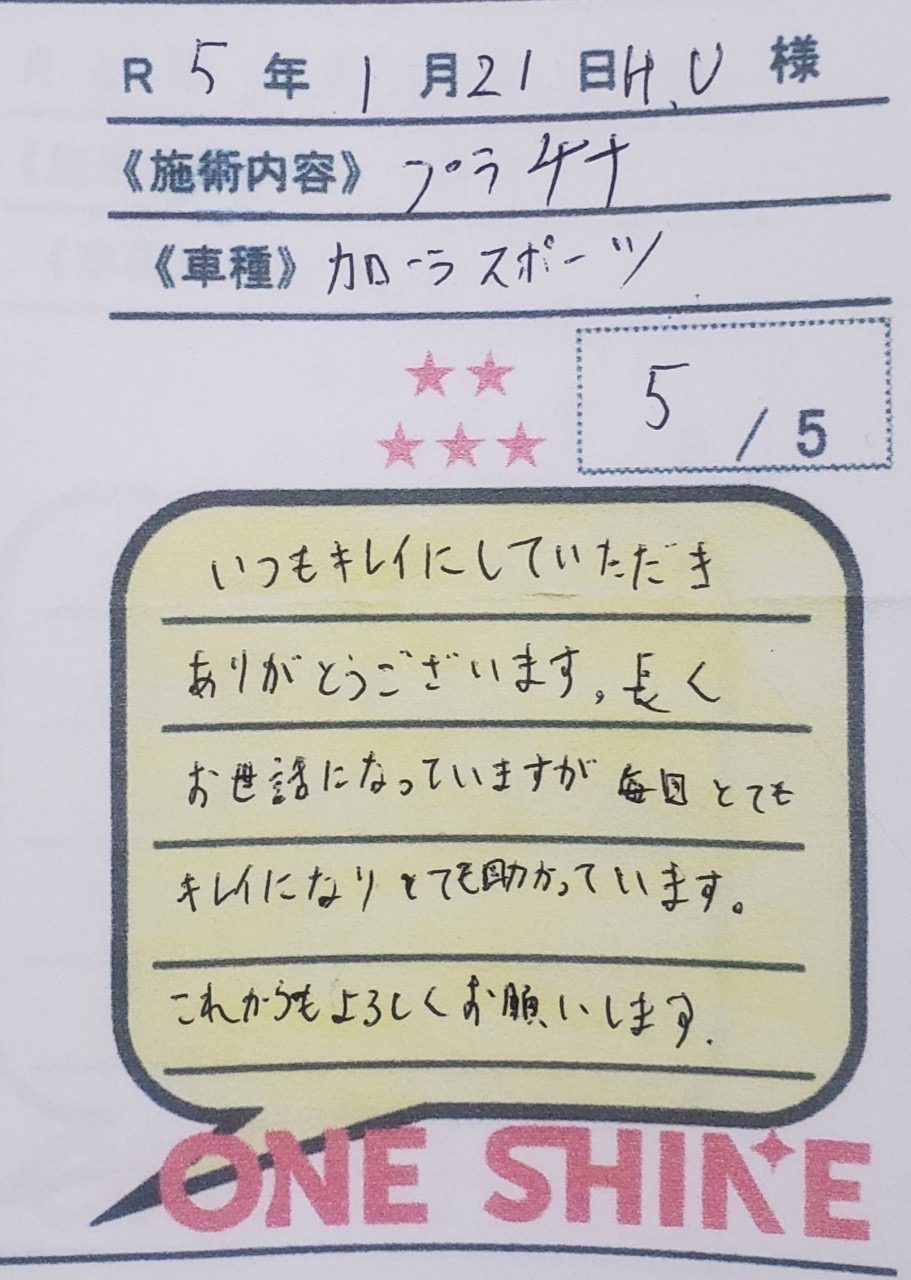 R 5 年 1 月 21 日 H.U 様
《施術内容》 プラチナ
《車種》 カローラスポーツ
5 / 5
いつもキレイにしていただき
ありがとうございます。長く
お世話になっていますが 毎回 とても
キレイになり とても助かっています。
これからもよろしくお願いします.
ONE SHINE